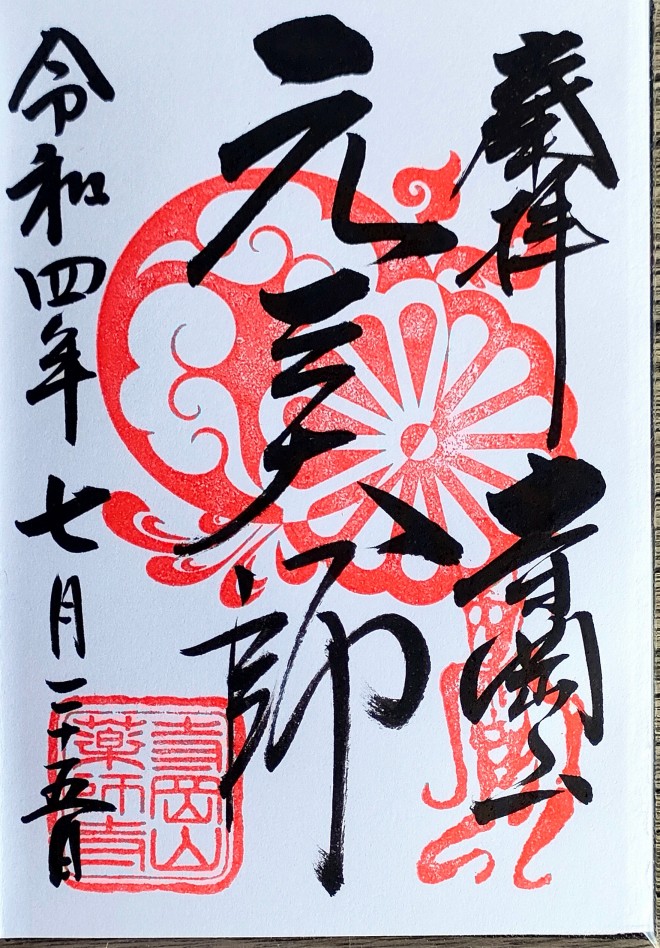 奉拝 寺岡山
元三大師
令和四年七月二十五日
寺岡山
薬師寺